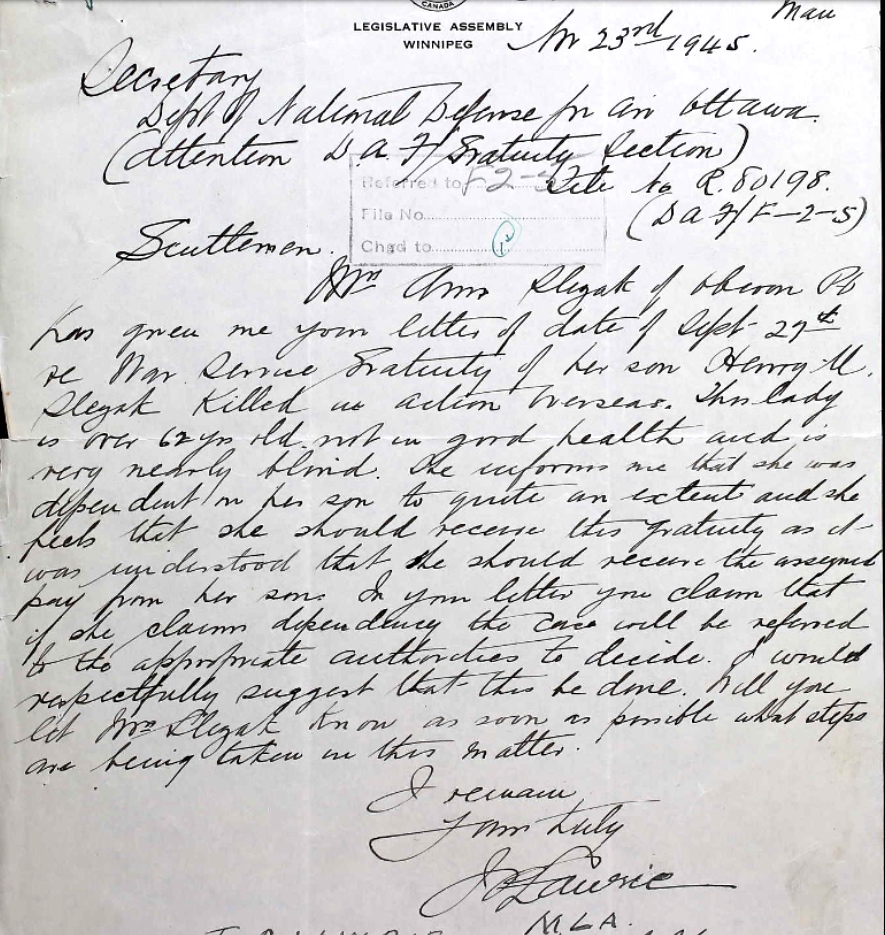 CANADA
LEGISLATIVE ASSEMBLY
WINNIPEG
Man
Nov 23rd 1945.
Secretary
Dept of National Defense for Air Ottawa.
(Attention D.A.F/Gratuity Section)
Referred to F2-5
File No R.80198.
File No.
(DAF/F-2-5)
Chgd to
Gentlemen.
Mrs Ann Slezak of
has given me your letter of date of Sept 27th
re War Service Gratuity of her son Henry M.
Slezak Killed in action Overseas. This lady
is over 62 yrs old not in good health and is
very nearly blind. She informs me that she was
dependent on her son to quite an extent and she
feels that she should receive this gratuity as it
was understood that she should receive the assigned
pay from her son. In your letter you claim that
if she claims dependency the case will be referred
to the appropriate authorities to decide. I would
respectfully suggest that this be done. Will you
let Mrs Slezak know as soon as possible what steps
are being taken in this matter.
I remain
Yours truly
Lawrie
M.L.A.